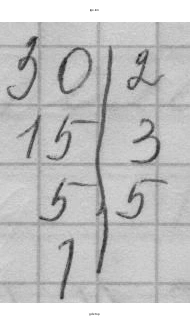 30 | 2
15 | 3
5 | 5
1 |